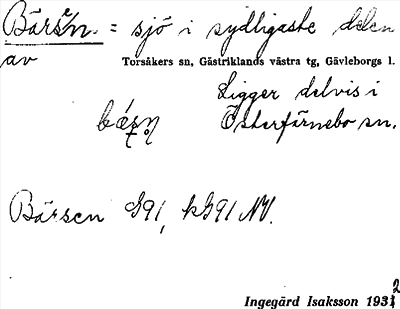 Bärsen. = sjö i sydligaste delen
av Torsåkers sn, Gästriklands västra tg, Gävleborgs l.
Ligger delvis i
Österfärnebo sn.
Bärsen G91, kG91 NV.
Ingegärd Isaksson 1932